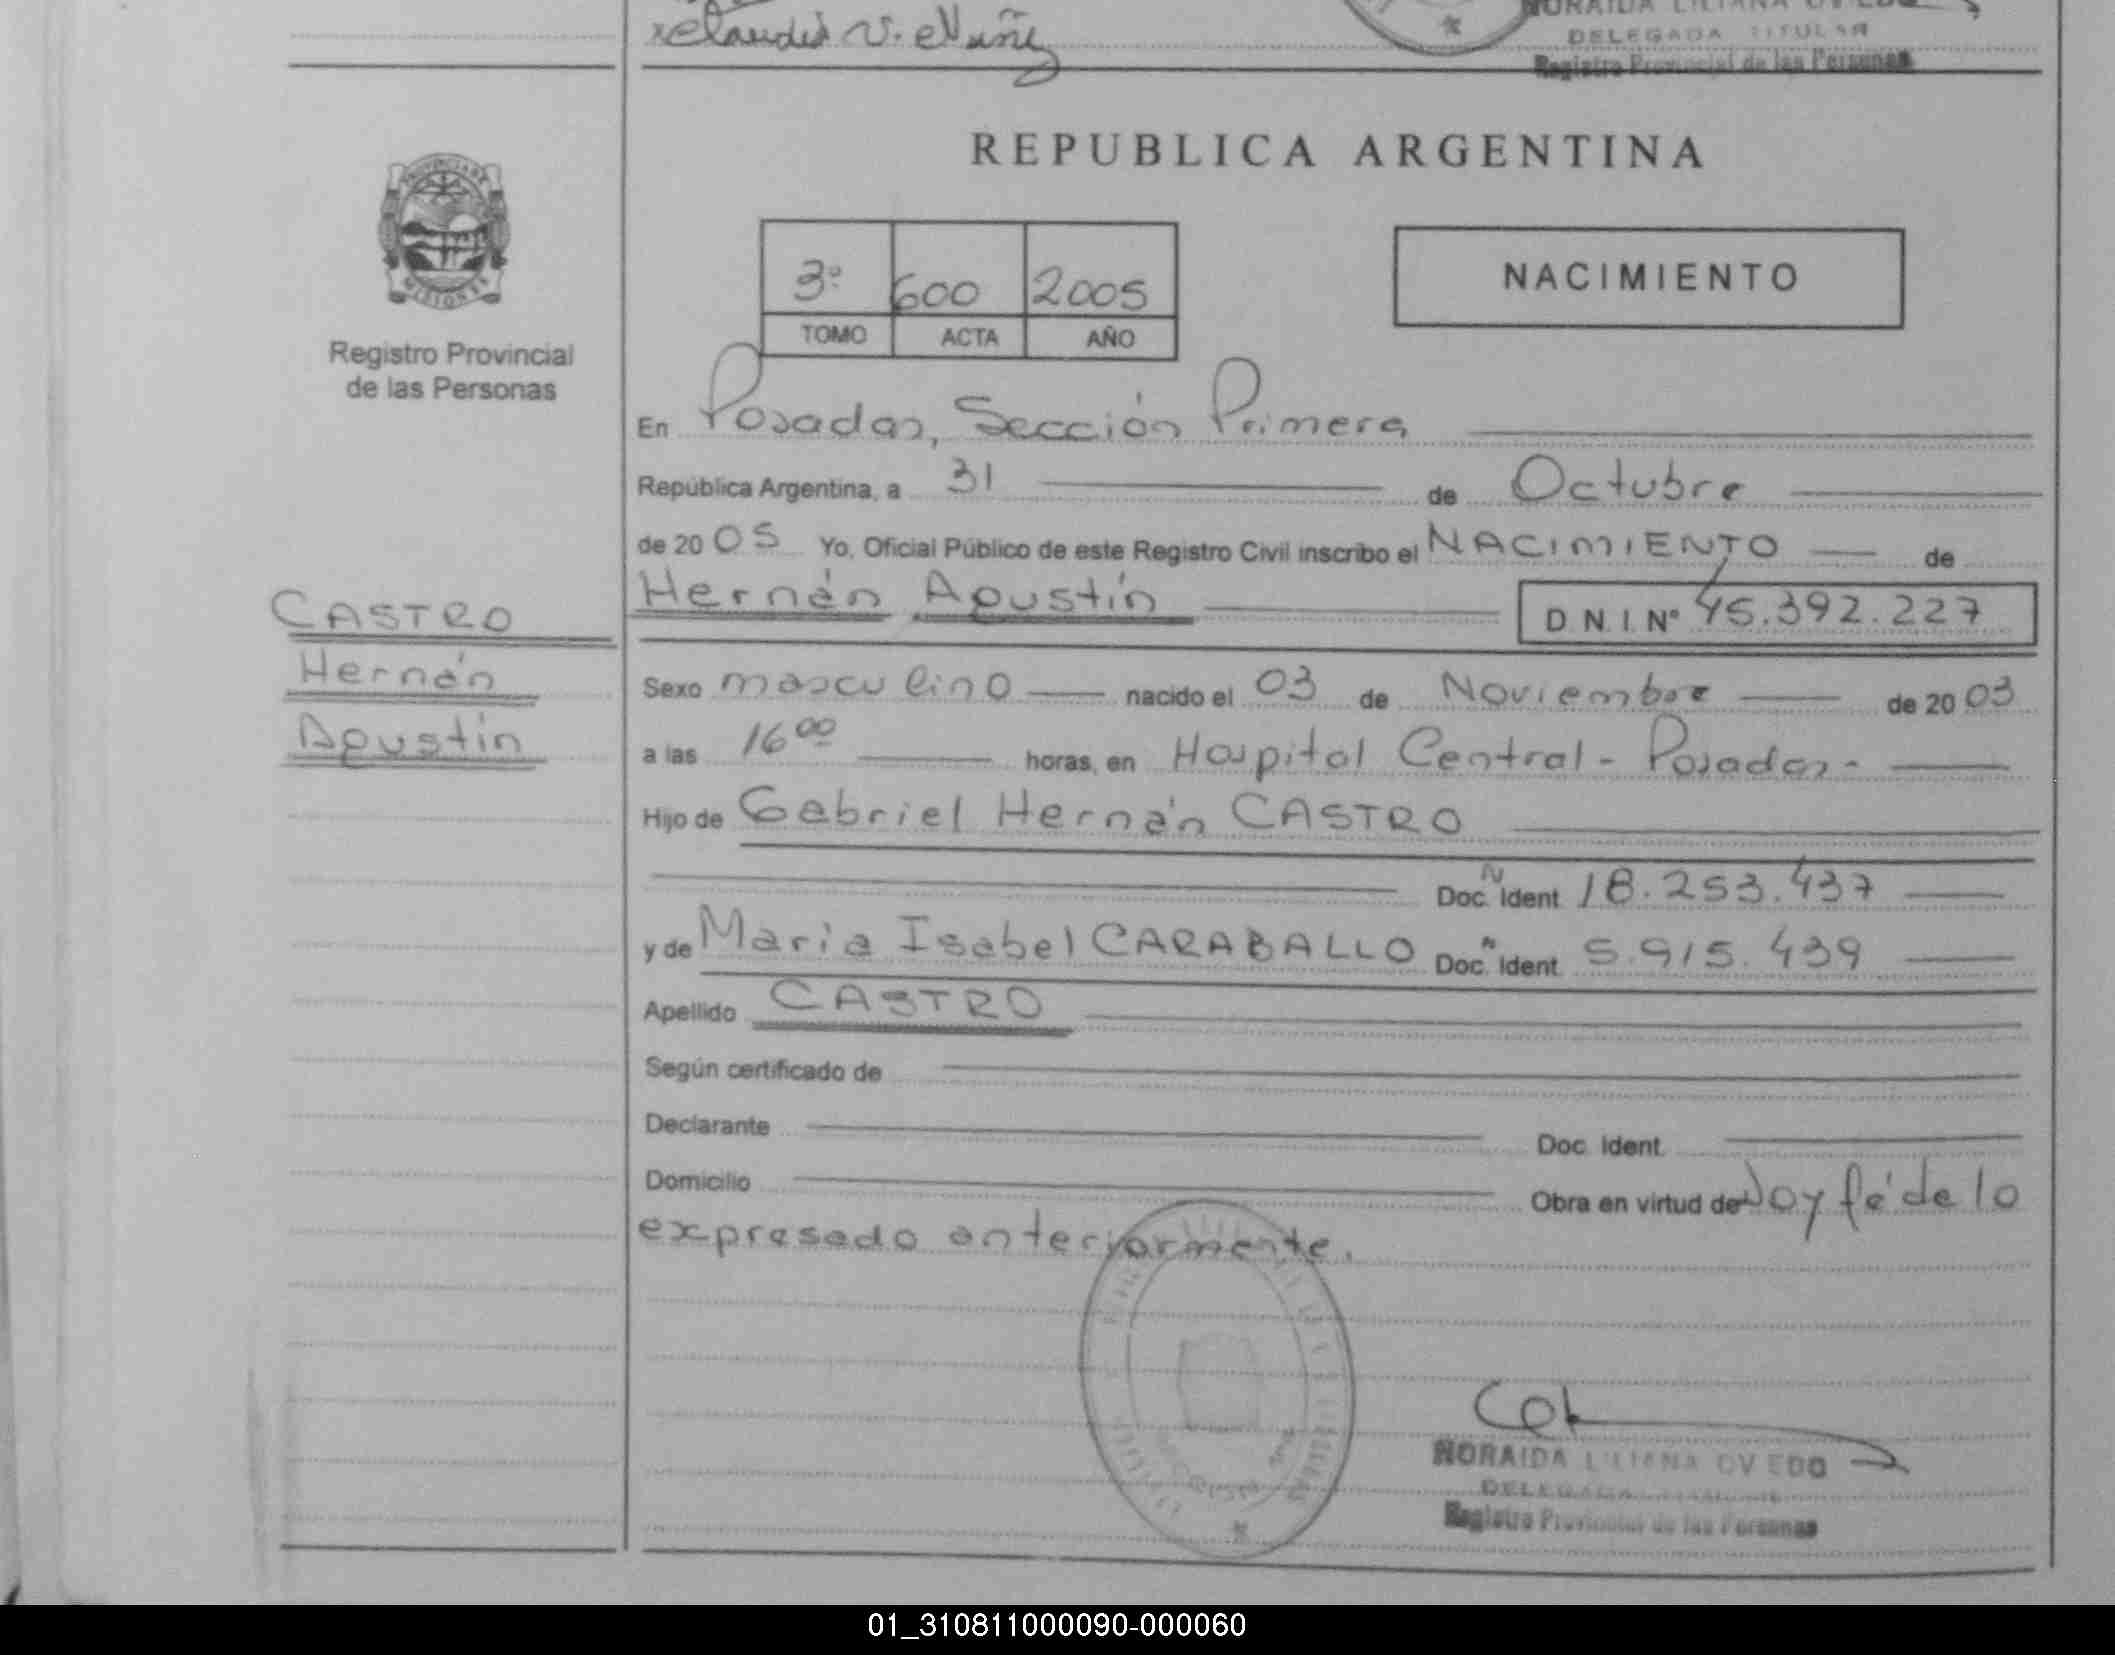 Claudia V. Nuñez
NORAIDA LILIANA OVIEDO
DELEGADA TITULAR
Registro Provincial de las Personas
PROVINCIA DE
MISIONES
Registro Provincial
de las Personas
REPUBLICA ARGENTINA
3º 600 2005
TOMO ACTA AÑO
NACIMIENTO
En Posadas, Sección Primera
República Argentina, a 31 de Octubre
de 20 05 Yo, Oficial Público de este Registro Civil inscribo el NACIMIENTO de
Hernán Agustín D.N.I. Nº 45.392.227
CASTRO
Hernán
Agustín
Sexo masculino nacido el 03 de Noviembre de 20 03
a las 16 00 horas, en Hospital Central - Posadas -
Hijo de Gabriel Hernán CASTRO
Doc. Ident. 18.253.437
y de Maria Isabel CARABALLO Doc. Ident. 5.915.439
Apellido CASTRO
Según certificado de
Declarante Doc. Ident.
Domicilio Obra en virtud de Doy fé de lo
expresado anteriormente.
NORAIDA LILIANA OVIEDO
DELEGADA TITULAR
Registro Provincial de las Personas
01_310811000090-000060